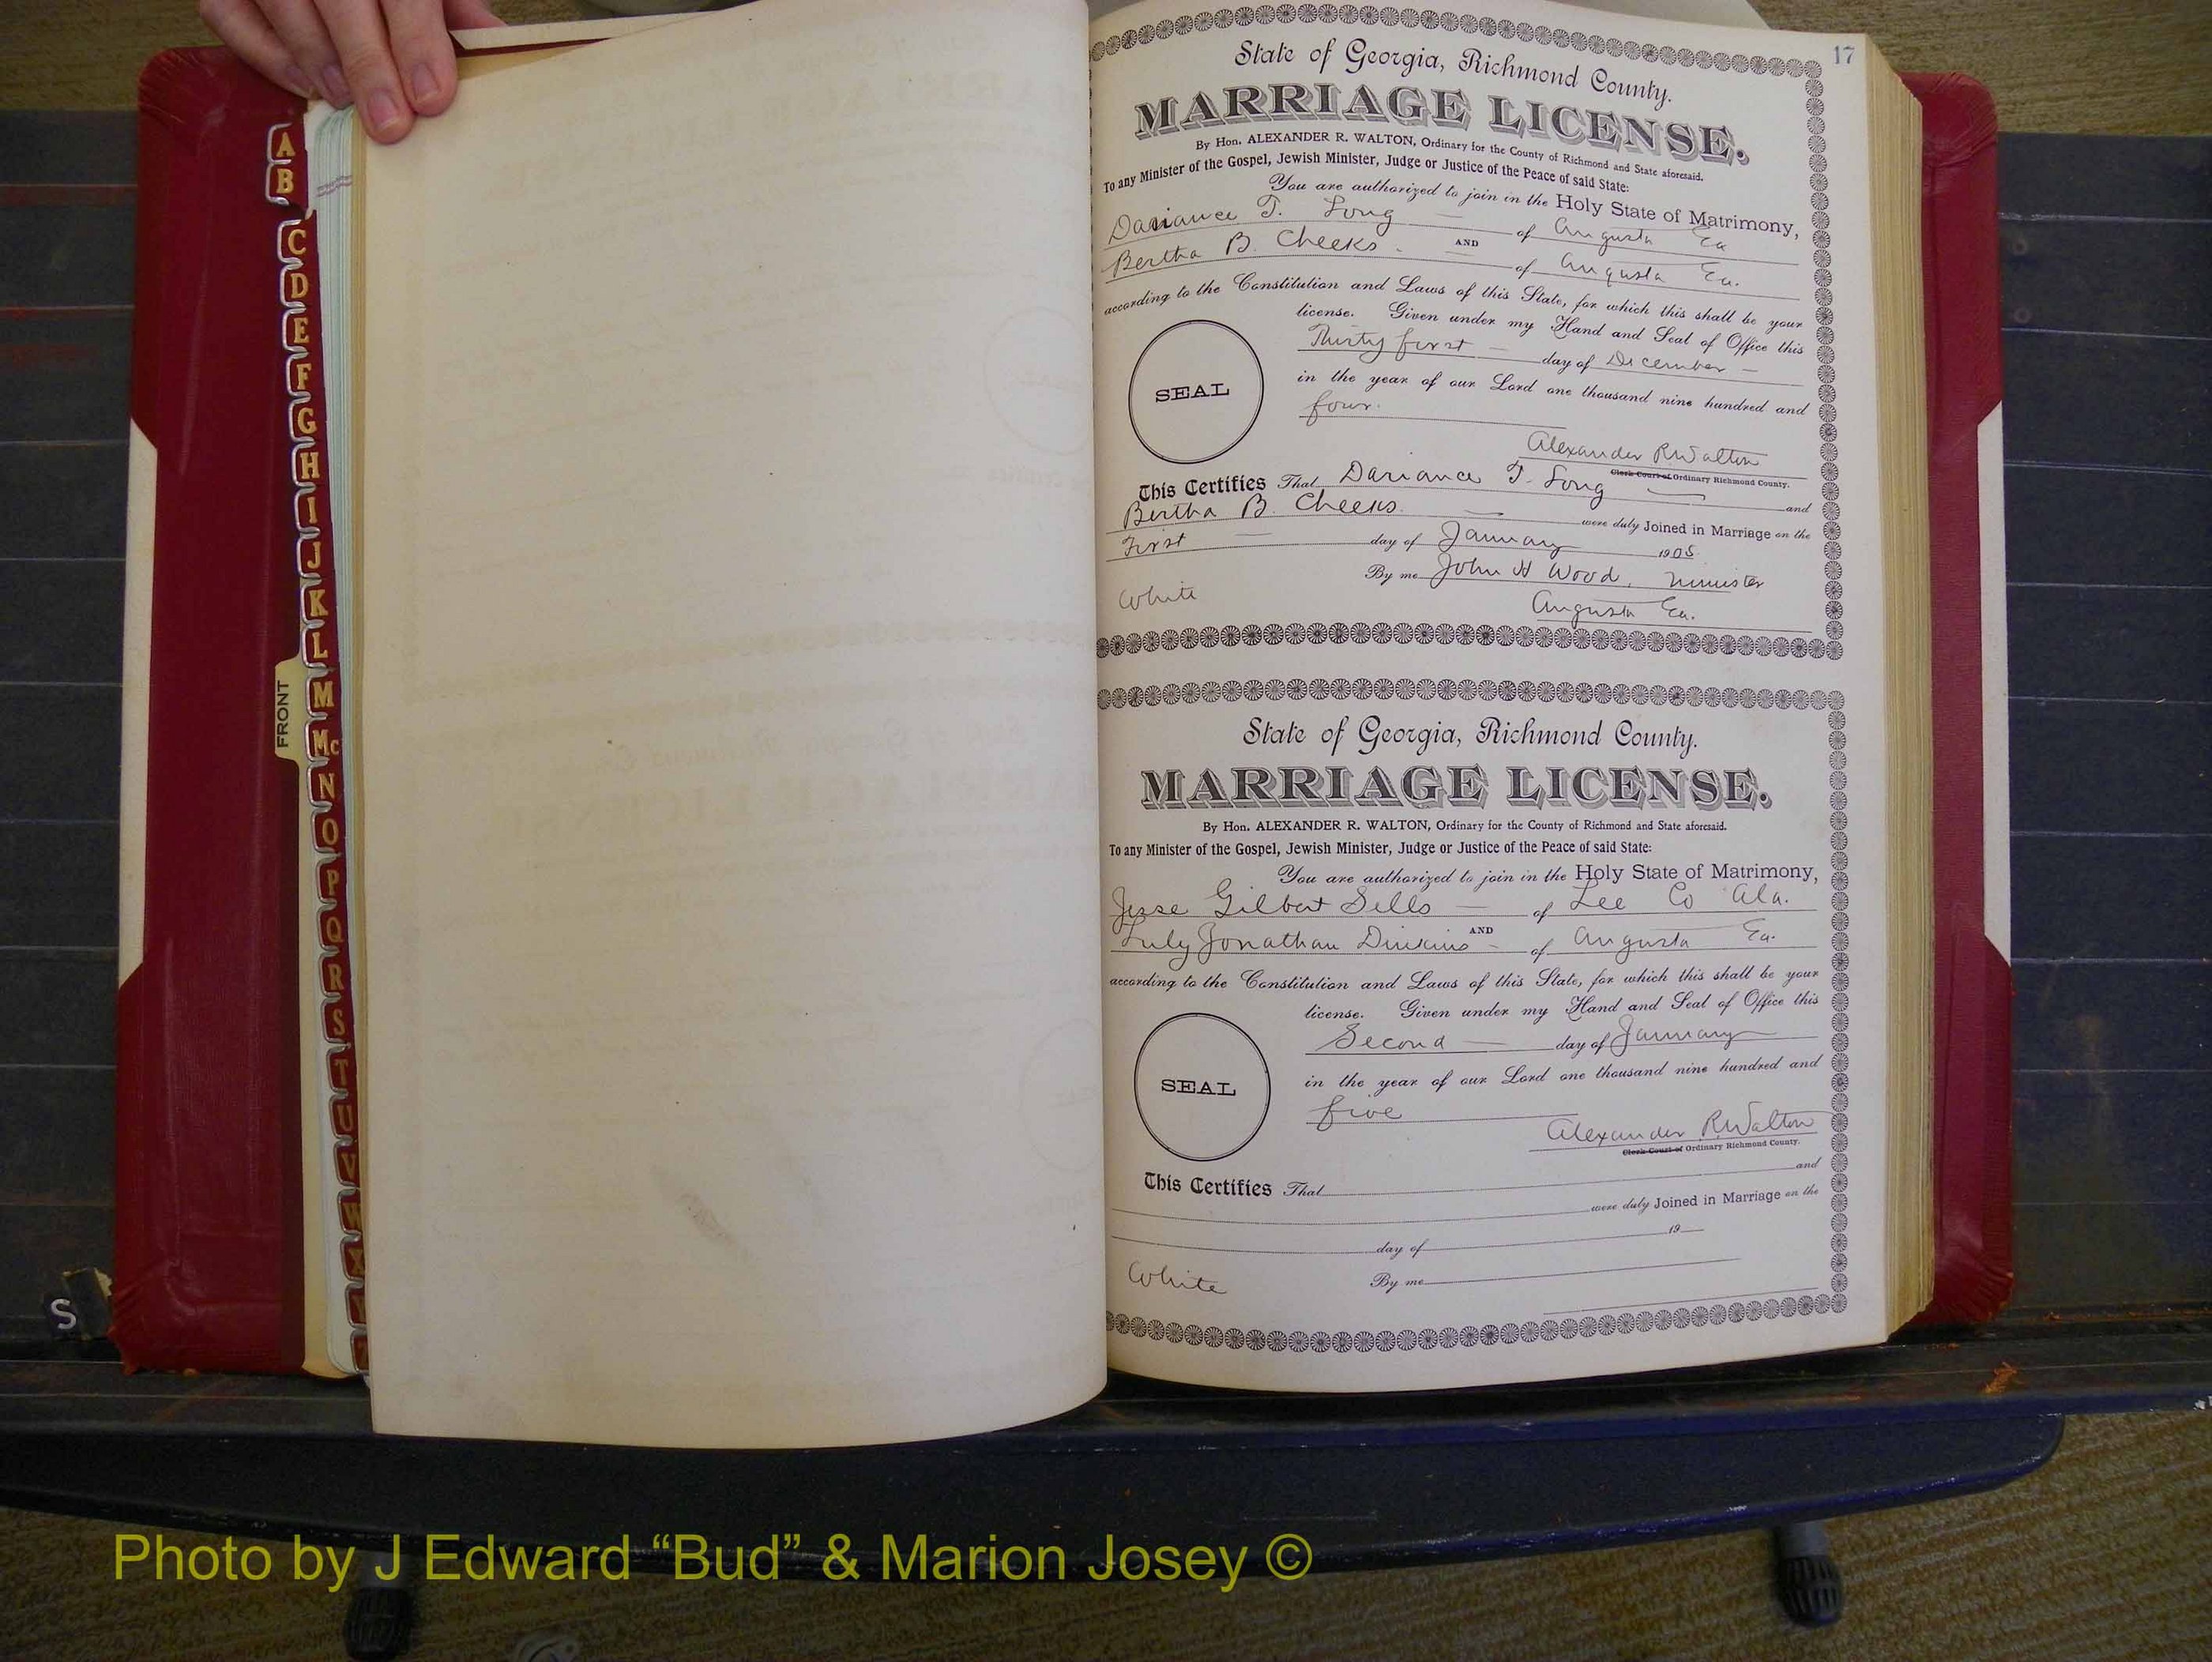 A
B
C
D
E
F
G
H
I
J
K
L
M
Mc
N
O
P
Q
R
S
T
U
V
W
X
FRONT
S
17
State of Georgia, Richmond County.
MARRIAGE LICENSE.
By Hon. ALEXANDER R. WALTON, Ordinary for the County of Richmond and State aforesaid.
To any Minister of the Gospel, Jewish Minister, Judge or Justice of the Peace of said State:
You are authorized to join in the Holy State of Matrimony,
Dariance T. Long of Augusta Ga
AND
Bertha B. Cheeks. of Augusta Ga.
according to the Constitution and Laws of this State, for which this shall be your
license. Given under my Hand and Seal of Office this
Thirty first day of December
in the year of our Lord one thousand nine hundred and
four.
SEAL
Alexander R Walton
Clerk Court of Ordinary Richmond County.
This Certifies That Dariance T. Long and
Bertha B. Cheeks. were duly Joined in Marriage on the
First day of January 1905.
By me John H Wood, minister
White Augusta Ga.
State of Georgia, Richmond County.
MARRIAGE LICENSE.
By Hon. ALEXANDER R. WALTON, Ordinary for the County of Richmond and State aforesaid.
To any Minister of the Gospel, Jewish Minister, Judge or Justice of the Peace of said State:
You are authorized to join in the Holy State of Matrimony,
Jesse Gilbert Sells of Lee Co Ala.
AND
Jonathan Dinkins of Augusta Ga.
according to the Constitution and Laws of this State, for which this shall be your
license. Given under my Hand and Seal of Office this
Second day of January
in the year of our Lord one thousand nine hundred and
five
SEAL
Alexander R. Walton
Clerk Court of Ordinary Richmond County.
This Certifies That and
were duly Joined in Marriage on the
day of 19
White By me
Photo by J Edward “Bud” & Marion Josey ©